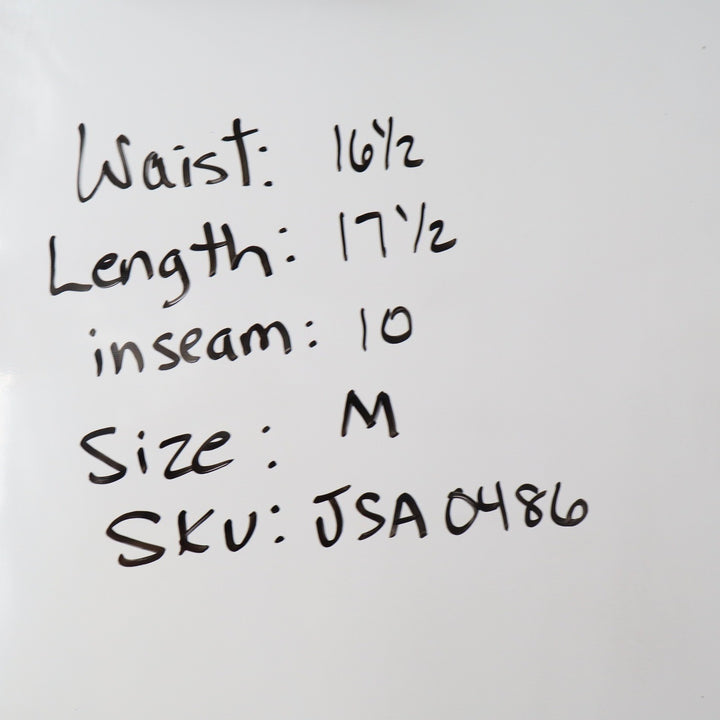 Waist: 16 1/2
Length: 17 1/2
inseam: 10
Size: M
SKU: JSA0486